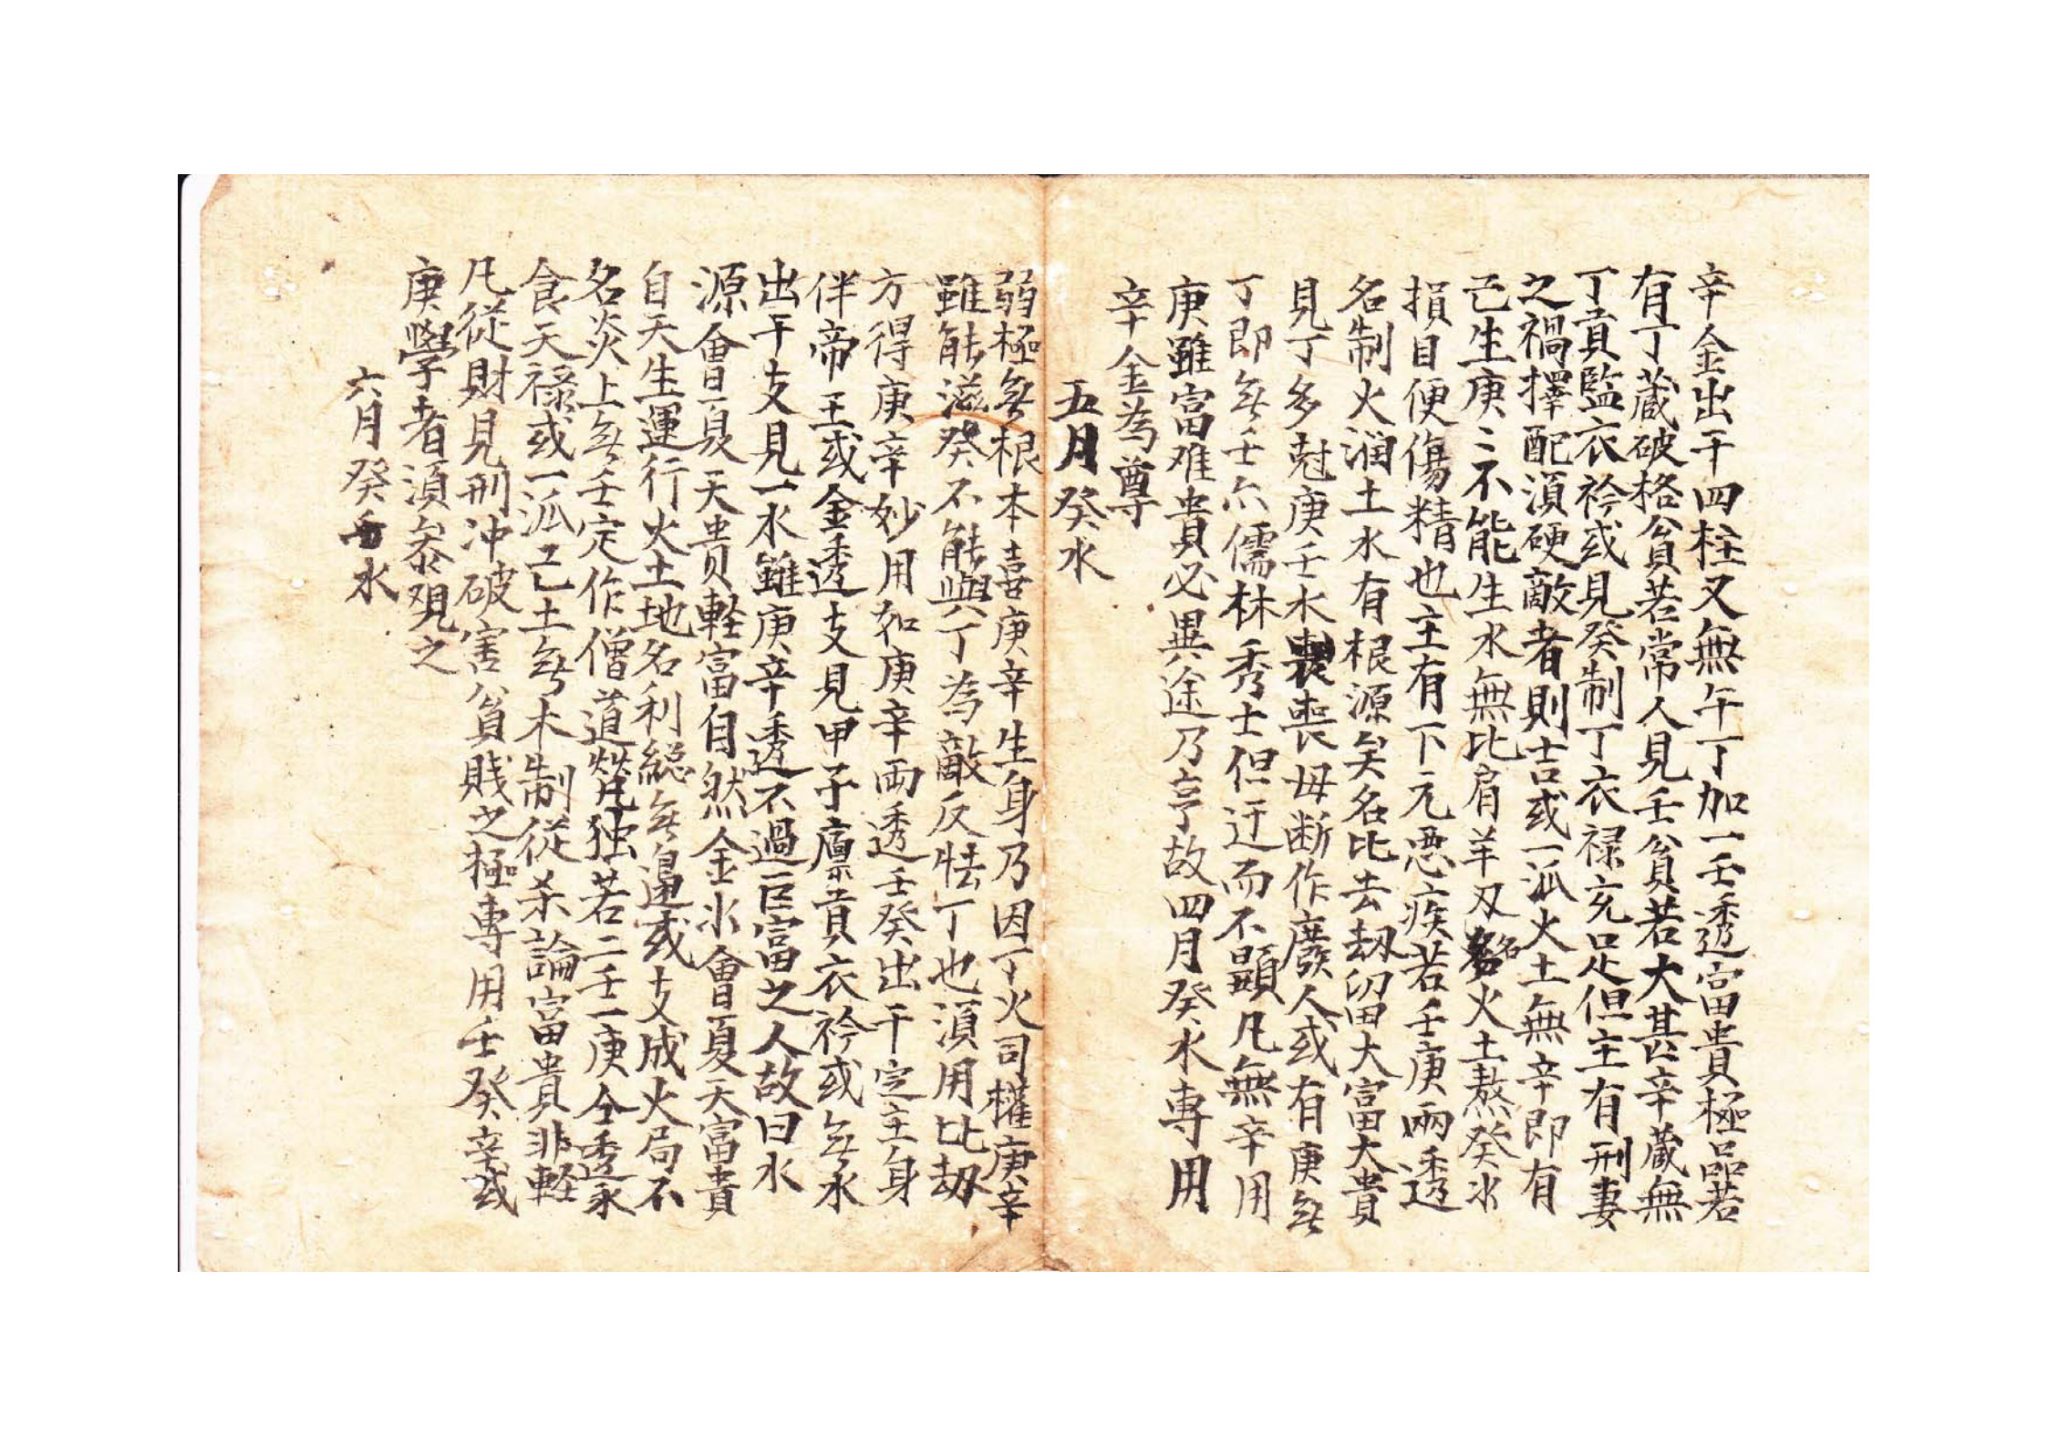 辛金出干四柱又無午丁加一壬透富貴極品若
有丁藏破格貧若常人見壬貧若大甚辛藏無
丁貢監衣衿或見癸制丁衣禄充足但主有刑妻
之禍擇配須硬敵者則吉或一派火土無辛即有
己生庚〻不能生水無比肩羊刃名火土熬癸水
損目便傷精也主有下元惡疾若壬庚兩透
名制火润土水有根源矣名比去刼留大富大貴
見丁多尅庚壬水喪母断作廢人或有庚無
丁即無壬亦儒林秀士但迂而不顯凡無辛用
庚雖富难貴必異途乃亨故四月癸水専用
辛金為尊
五月癸水
弱極無根本喜庚辛生身乃因丁火司權庚辛
雖能滋癸不能與丁為敵反怯丁也須用比刼
方得庚辛妙用如庚辛兩透壬癸出干定主身
伴帝王或金透支見甲子廪貢衣衿或無水
出干支見一水雖庚辛透不過一巨富之人故曰水
源會夏天貴軽富自然金水會夏天富貴
自天生運行火土地名利総無逼或支成火局不
名炎上無壬定作僧道煢独若二壬一庚仝透永
食天禄或一派己土無木制從杀論富貴非軽
凡從財見刑冲破害貧賎之極専用壬癸辛或
庚學者須叅观之
六月癸水